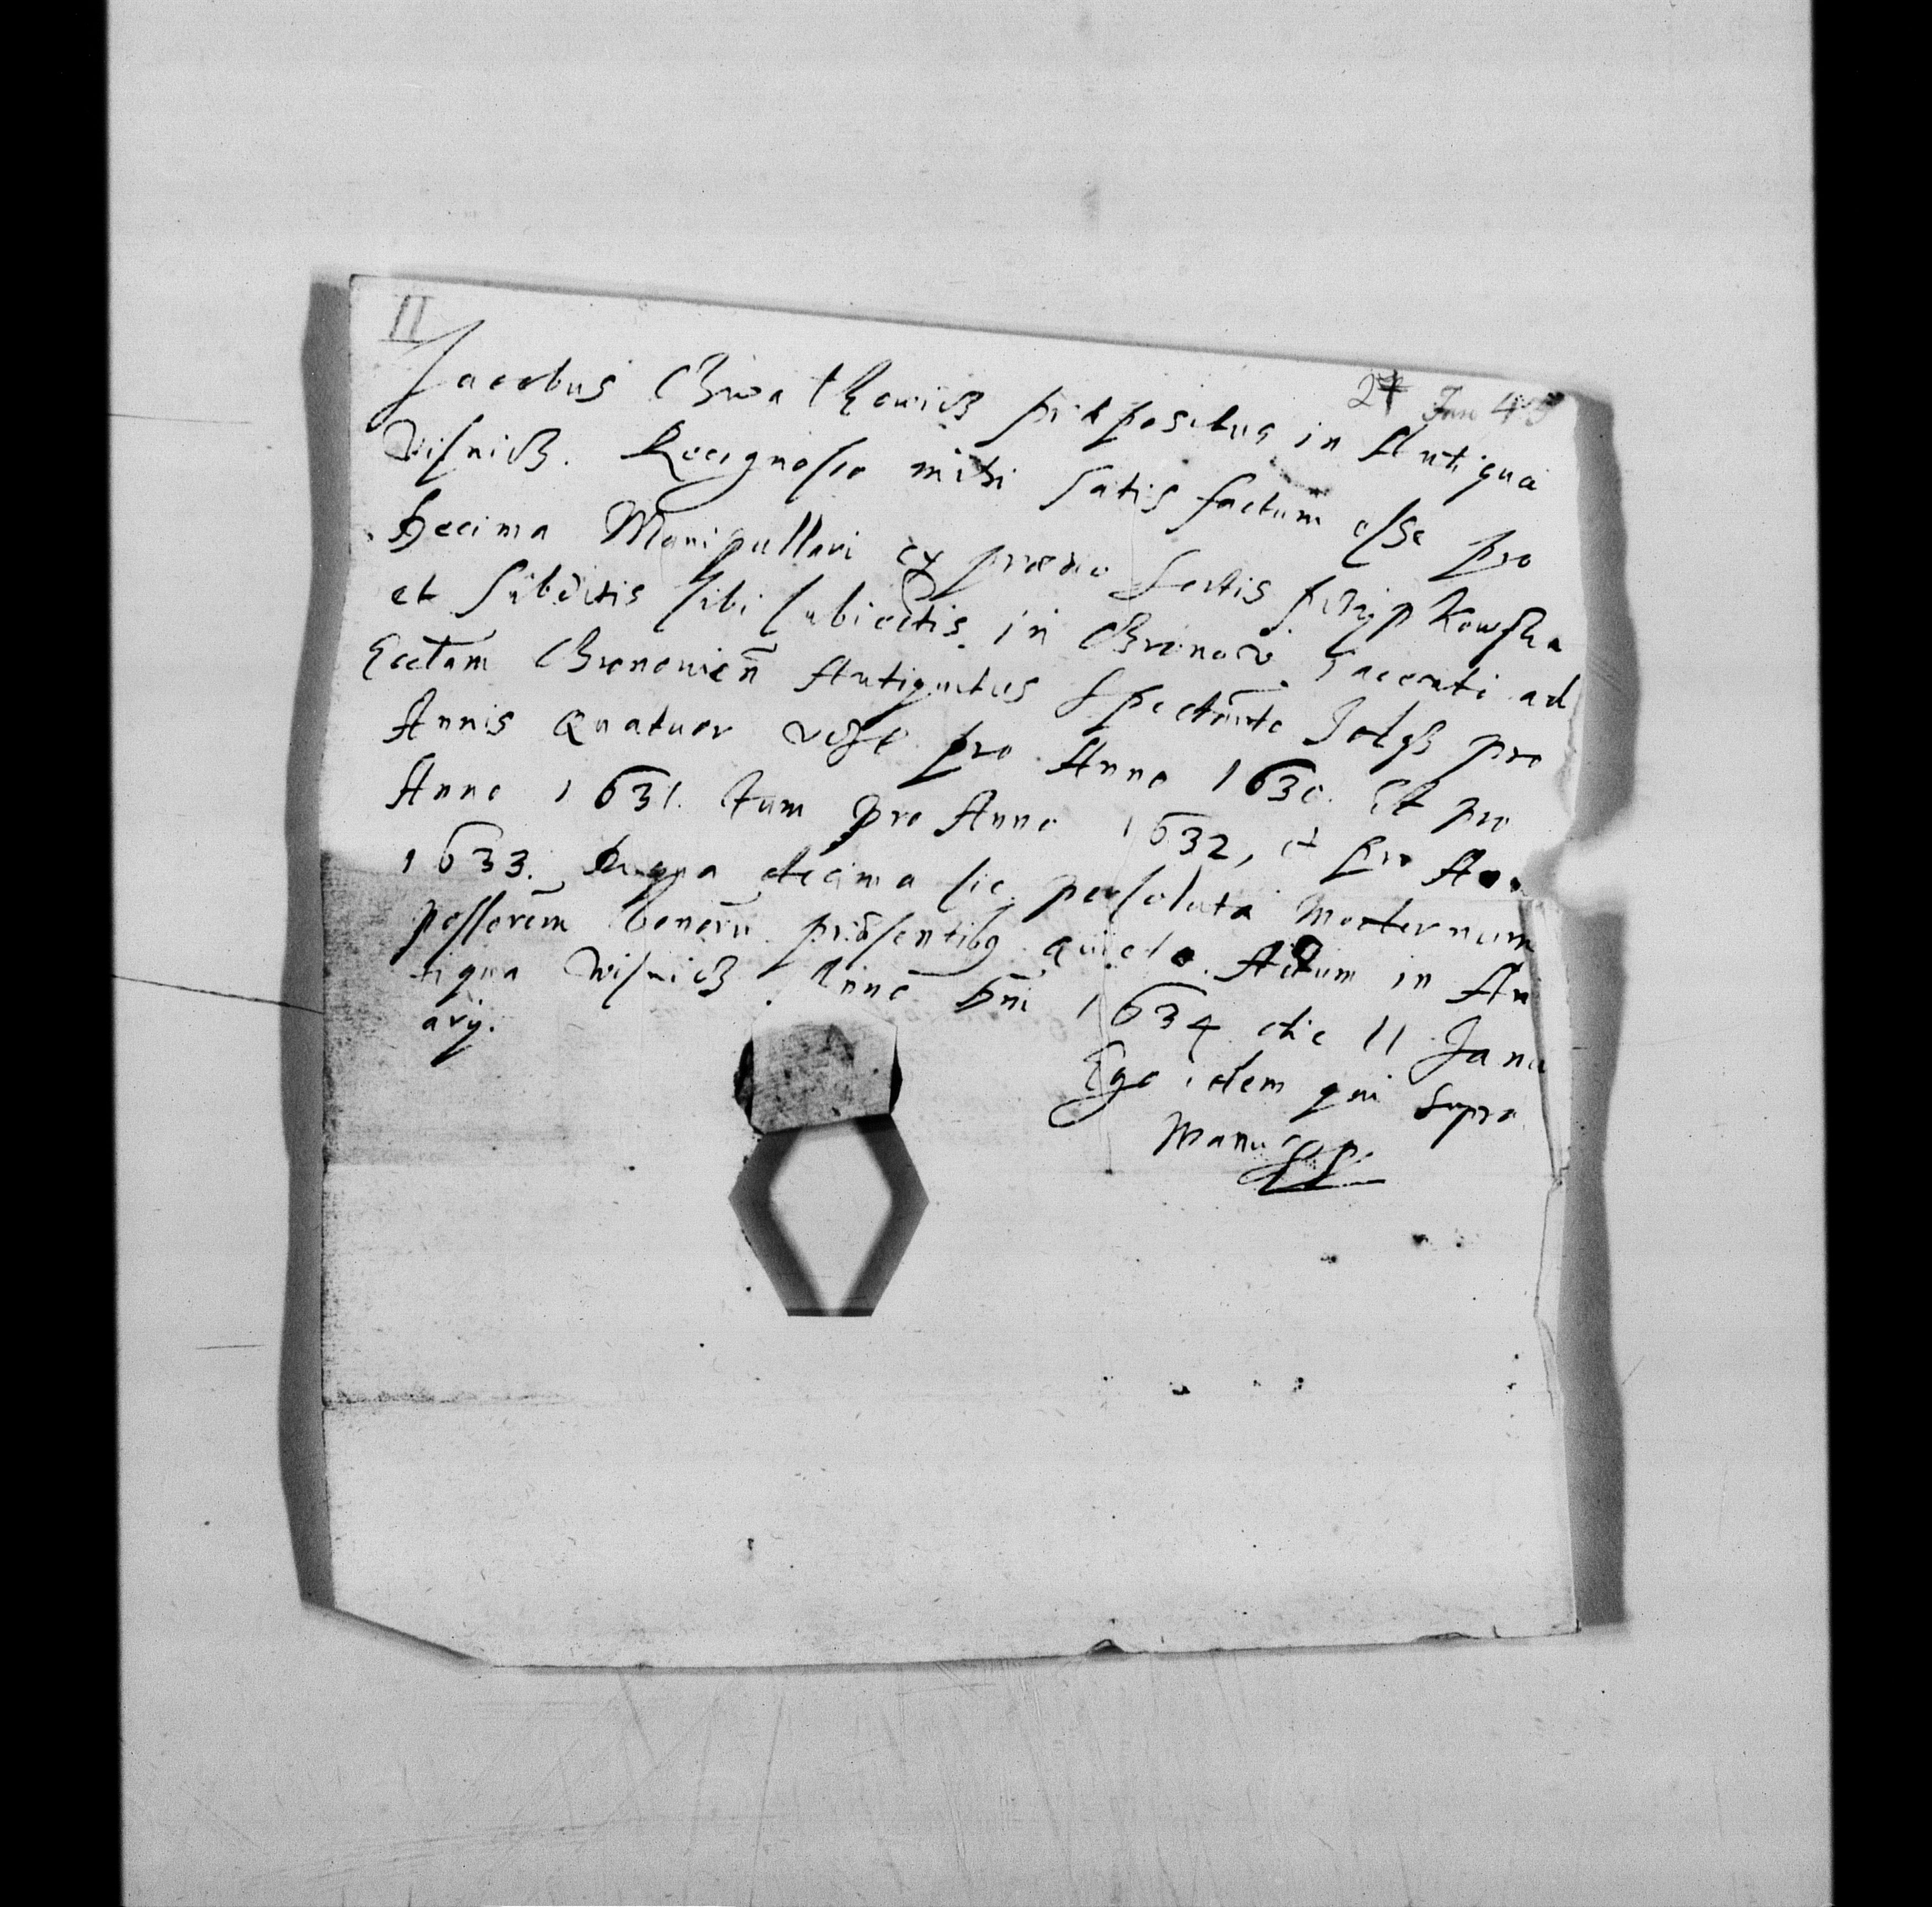 II
27 Jan 45
Jacobus Chwalkowicz præpositus in Antiqua
Visnicz. Recognosco mihi satis factum esse pro
Decima Manipullari ex prædio Sortis
et subditis sibi subiectis in Chronow Jacenti ad
Ecclam Chronowień Antiquitus Spectante pro
Annis Quatuor vdzt pro Anno 1630. Et pro
Anno 1631. tum pro Anno 1632, et pro
1633. De qua decima sic persoluta Modernum
possorem bonoru præsentibq quieto. Actum in An
tiqua Wisnicz Anno Dni 1634 die 11 Janu
arij.
Ego idem qui supra
Manu